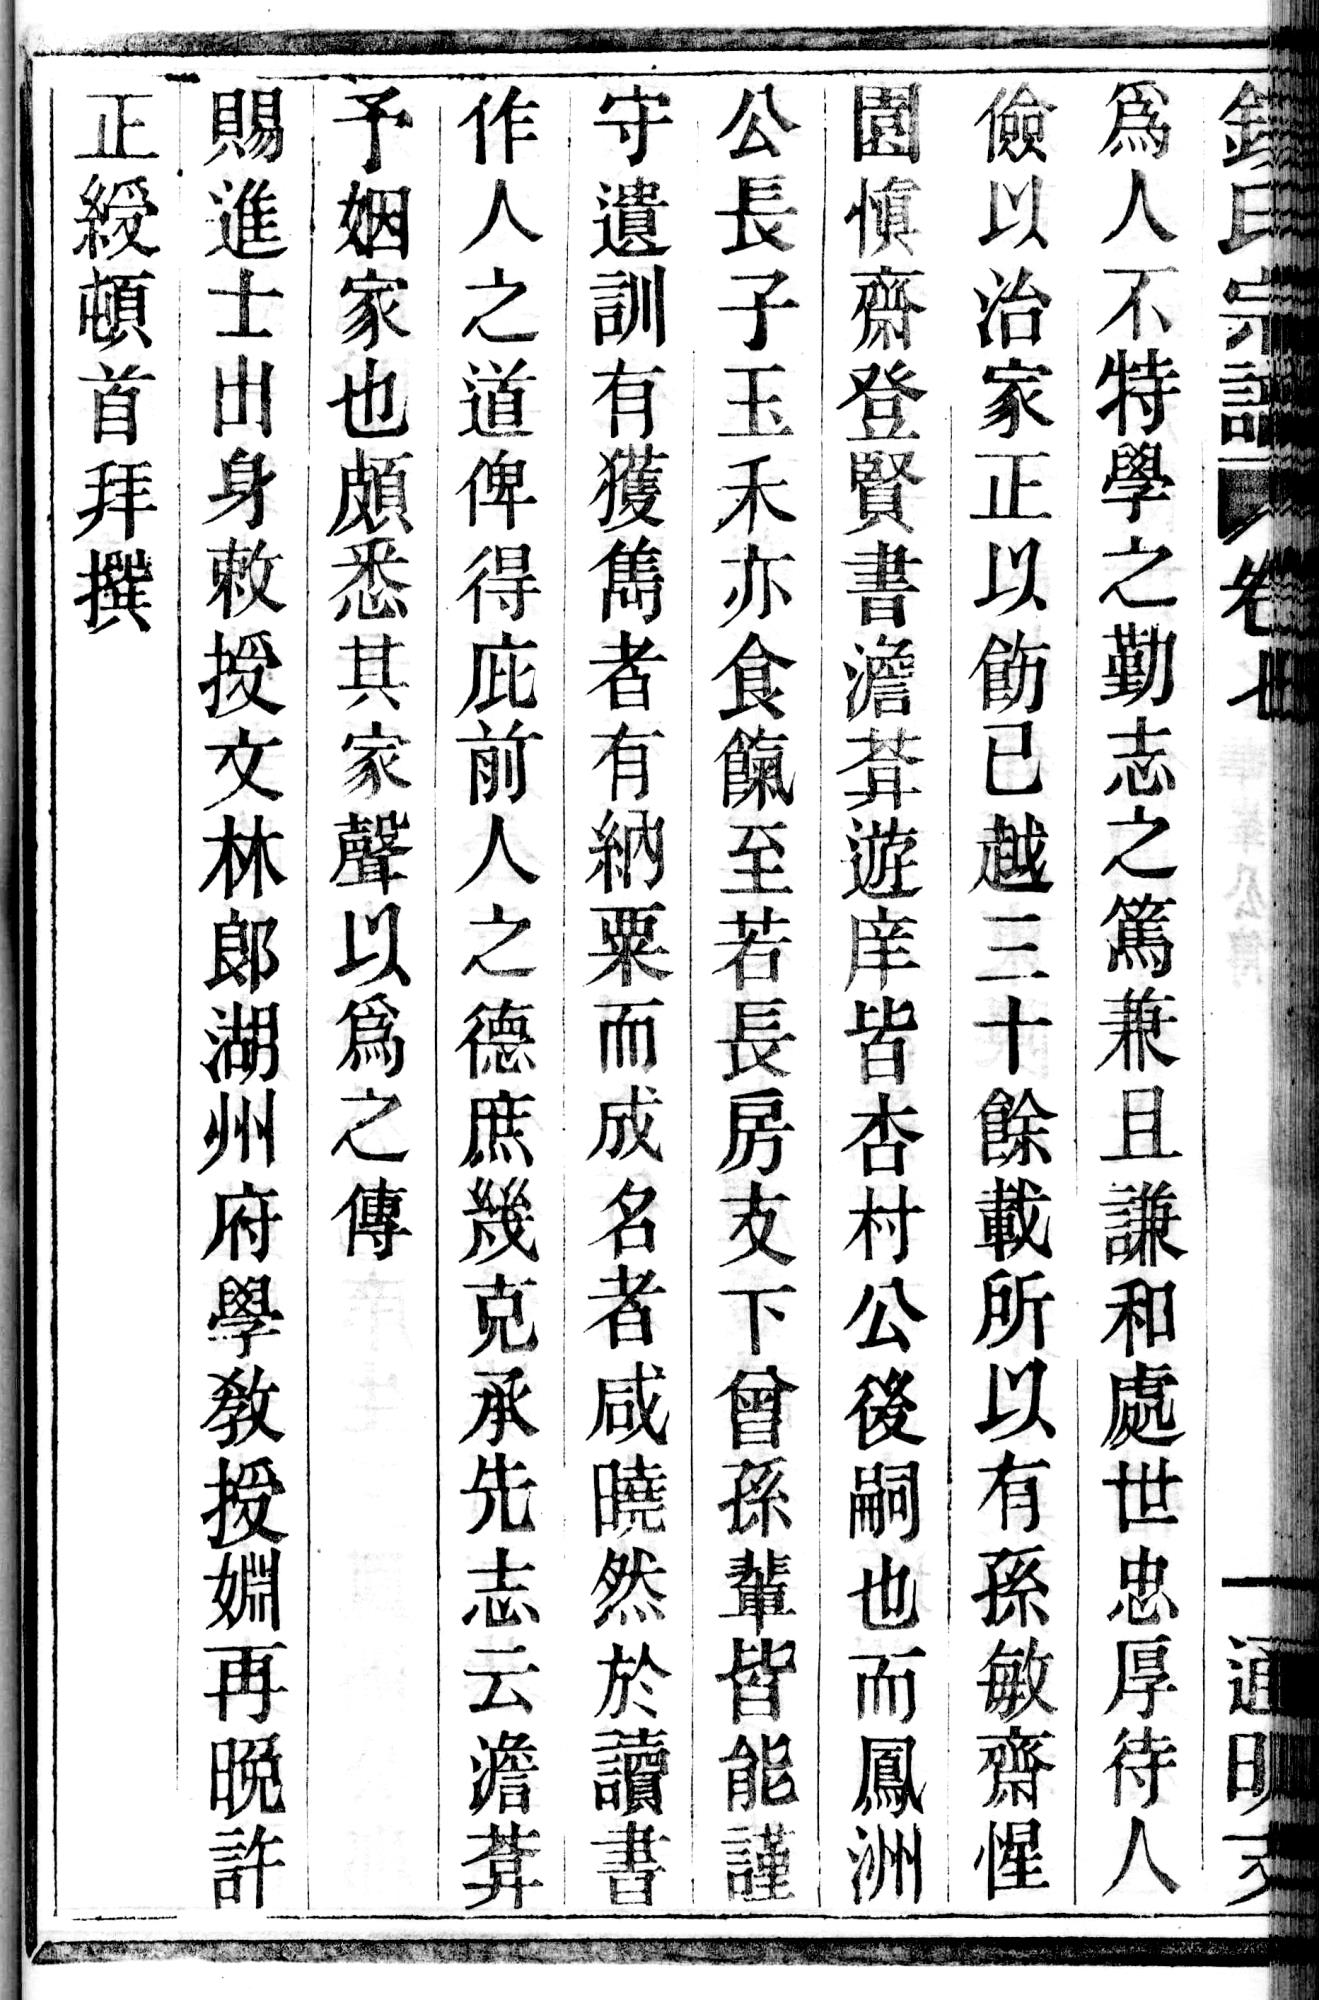 氏宗譜 卷廿 通明支
爲人不特學之勤志之篤兼且謙和處世忠厚待人
儉以治家正以飭已越三十餘載所以有孫敏齋惺
園愼齋登賢書澹葊遊庠皆杏村公後嗣也而鳳洲
公長子玉禾亦食餼至若長房支下曾孫輩皆能謹
守遺訓有獲雋者有納粟而成名者咸曉然於讀書
作人之道俾得庇前人之德庶幾克承先志云澹葊
予姻家也頗悉其家聲以爲之傳
賜進士出身敕授文林郎湖州府學教授姻再晚許
正綬頓首拜撰